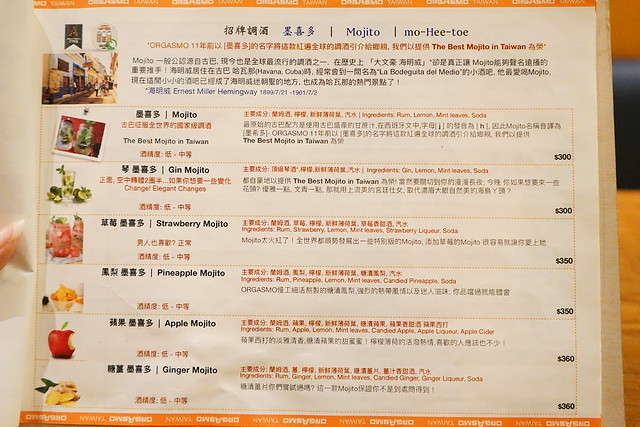 ORGASMO TAIWAN ORGASMO TAIWAN ORGASMO TAIWAN ORGASMO TAIWAN
招牌調酒 墨喜多 | Mojito | mo-Hee-toe
*ORGASMO 11年前以 [墨喜多]的名字將這款紅遍全球的調酒引介給鄉親, 我們以提供 The Best Mojito in Taiwan 為榮*
Mojito 一般公認源自古巴, 現今也是全球最流行的調酒之一. 在歷史上 「大文豪 海明威」*卻是真正讓 Mojito能夠聲名遠播的
重要推手！海明威居住在古巴 哈瓦那(Havana, Cuba)時, 經常會到一間名為"La Bodeguita del Medio"的小酒吧. 他最愛喝Mojito,
現在這間小小的酒吧已經成了海明威迷朝聖的地方, 也成為哈瓦那的熱門景點了！
*海明威 Ernest Miller Hemingway 1899/7/21 -1961/7/2
墨喜多 | Mojito
古巴征服全世界的國家級調酒
The Best Mojito in Taiwan
酒精度: 低 - 中等
主要成分: 蘭姆酒, 檸檬, 新鮮薄荷葉, 汽水 | Ingredients: Rum, Lemon, Mint leaves, Soda
最原始的古巴配方是使用古巴盛產的甘蔗汁,在西班牙文中,字母[ j ] 的發音為 [ h ], 因此Mojito名稱音譯為
[墨希多]- ORGASMO 11年前以 [墨喜多]的名字將這款紅遍全球的調酒引介給鄉親, 我們以提供
The Best Mojito in Taiwan 為榮
$300
琴 墨喜多 | Gin Mojito
正面, 空中轉體2圈半...如果你想要一些變化
Change! Elegant Changes
酒精度: 低 - 中等
主要成分: 頂級琴酒*,檸檬,新鮮薄荷葉,汽水 | Ingredients: Gin, Lemon, Mint leaves, Soda
都自豪地以提供 The Best Mojito in Taiwan 為榮! 當然要關切到你的漫漫長夜; 今晚 你如果想要來一些
花頭? 優雅一點, 文青一點, 那就用上流美的宮廷仕女, 取代濃眉大眼自然美的海島丫頭？
$300
草莓 墨喜多 | Strawberry Mojito
男人也喜歡? 正常
酒精度: 低 - 中等
主要成分: 蘭姆酒, 草莓, 檸檬, 新鮮薄荷葉, 草莓香甜酒, 汽水
Ingredients: Rum, Strawberry, Lemon, Mint leaves, Strawberry Liqueur, Soda
Mojito太火紅了！全世界都順勢發展出一些特別版的Mojito, 添加草莓的Mojito 很容易就讓你愛上她
$350
鳳梨 墨喜多 | Pineapple Mojito
酒精度: 低 - 中等
主要成分: 蘭姆酒, 鳳梨, 檸檬, 新鮮薄荷葉, 糖漬鳳梨, 汽水
Ingredients: Rum, Pineapple, Lemon, Mint leaves, Candied Pineapple, Soda
ORGASMO慢工細活熬製的糖漬鳳梨,強烈的熱帶風情以及迷人滋味; 你品嚐過就能體會
$350
蘋果 墨喜多 | Apple Mojito
酒精度: 低 - 中等
主要成分: 蘭姆酒, 蘋果, 檸檬, 新鮮薄荷葉, 糖漬蘋果, 蘋果香甜酒, 蘋果西打
Ingredients: Rum, Apple, Lemon, Mint leaves, Candied Apple, Apple Liqueur, Apple Cider
蘋果西打的淡雅清香,糖漬蘋果的甜蜜蜜！檸檬薄荷的活潑熱情,喜歡的人應該也不少！
$360
糖薑 墨喜多 | Ginger Mojito
酒精度: 低 - 中等
主要成分: 蘭姆酒, 薑, 檸檬, 新鮮薄荷葉, 糖漬薑片, 薑汁香甜酒, 汽水
Ingredients: Rum, Ginger, Lemon, Mint leaves, Candied Ginger, Ginger Liqueur, Soda
糖漬薑片你們嘗試過嗎？這一款Mojito保證你不是到處問得到！
$360
ORGASMO TAIWAN ORGASMO TAIWAN ORGASMO TAIWAN ORGASMO TAIWAN